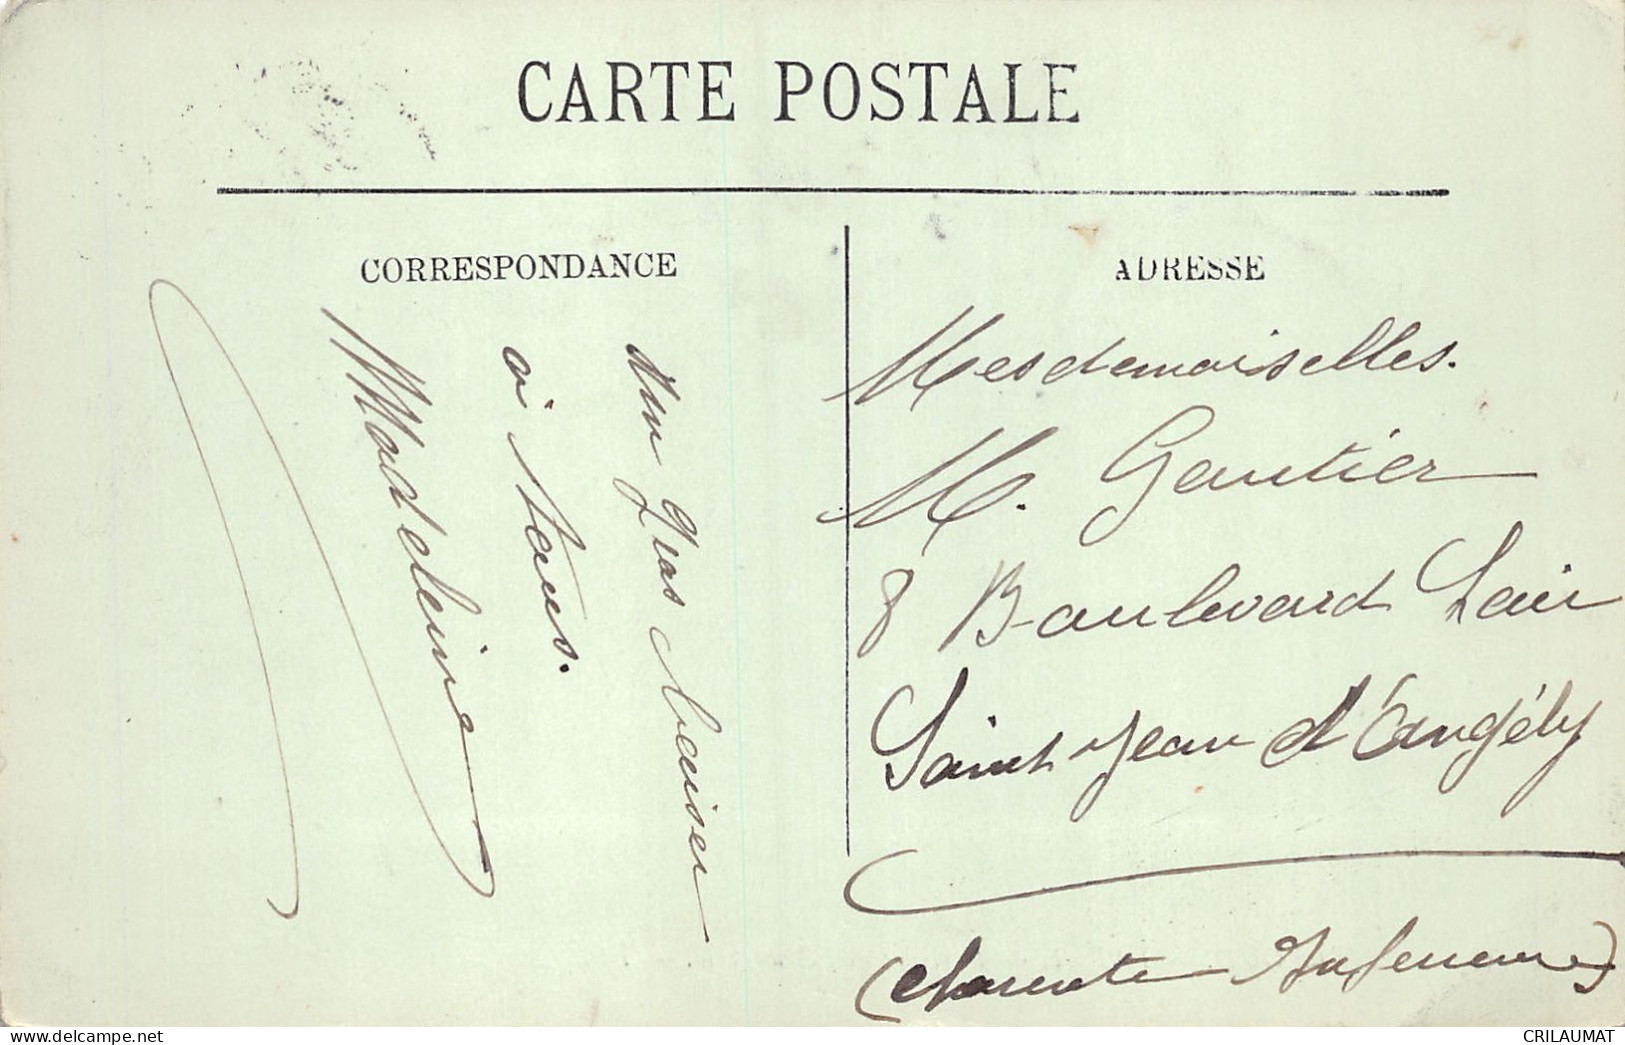 CARTE POSTALE
CORRESPONDANCE
Un gros baiser
à tous.
Madeleine
ADRESSE
Mesdemoiselles.
M. Gautier
8 Boulevard Lair
Saint Jean d'Angély
(Charente Inférieure)
CRILAUMAT